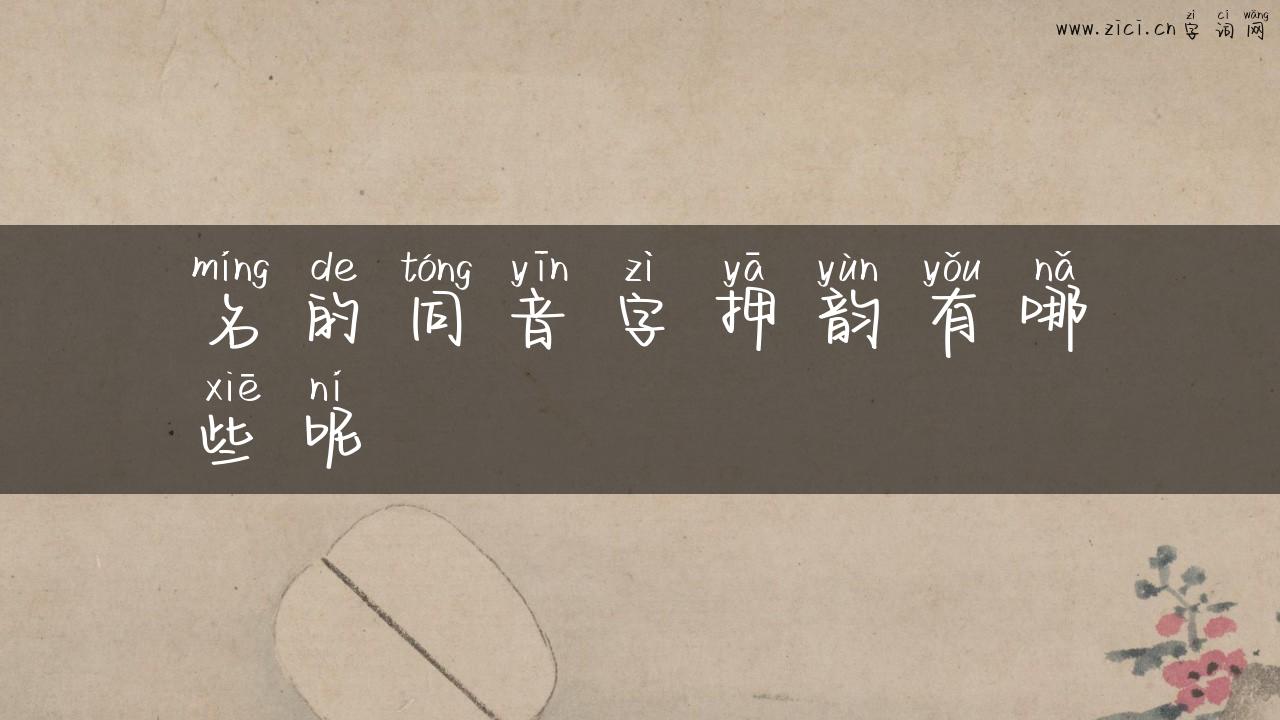 zì cí wǎng
www.zici.cn 字 词 网
míng de tóng yīn zì yā yùn yǒu nǎ
名 的 同 音 字 押 韵 有 哪
xiē ní
些 呢